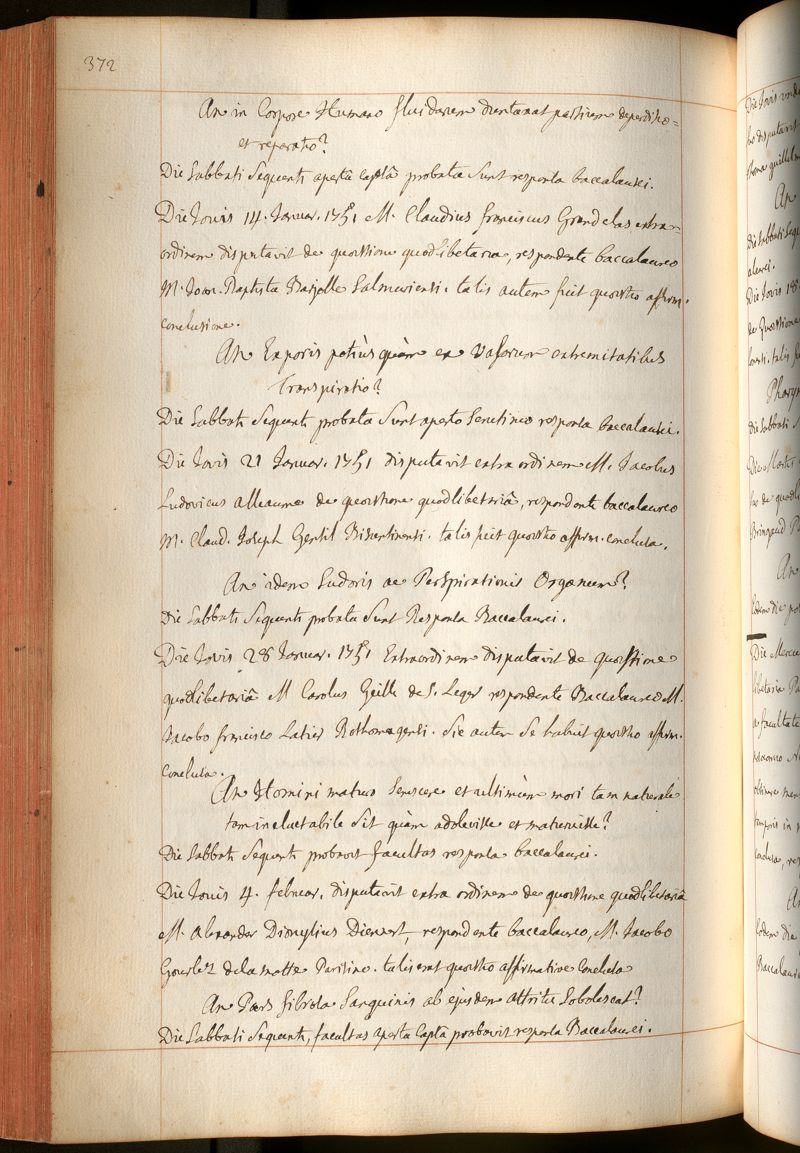 372
An in Corpore Humano fluidarum duntaxat partium deperditio=
et reparatio?
Die Sabbati Sequenti aperta capsâ probata sunt responsa baccalaurei.
Die Jovis 14. Januar. 1751 M. Claudius franciscus Grandclas extra=
ordinem disputavit de quæstione quodlibetaria, respondente baccalaureo
M. Joan. Baptista Salmuriensi. talis autem fuit quæstio affirm.
conclusione.
An E poris potiùs quàm ex Vasorum extremitatibus
Transpiratio?
Die Sabbati Sequenti probata sunt aperto Scrutinio responsa baccalaurei.
Die Jovis 21 Januar. 1751 disputavit extra ordinem M. Jacobus
Ludovicus alleaume de quæstione quodlibetariâ, respondente baccalaureo
M. Claud. Joseph Gentil talis fuit quæstio affirm. conclusa.
An idem Sudoris ac Perspirationis Organum?
Die Sabbati Sequenti probata Sunt Responsa Baccalaurei.
Die Jovis 28 Januar. 1751 Extraordinem disputavit de quæstione
quodlibetariâ M Carolus Gillot de S. Leger respondente Baccalaureo M.
Jacobo francisco Latier Rothomagensi. Sic autem se habuit quæstio affirm.
conclusa.
An Homini maturo Senescere et ultimùm mori tam naturale
tam ineluctabile Sit quàm adolevisse et maturuisse?
Die Sabbati Sequenti probavit facultas responsa baccalaurei.
Die Jovis 4. februar. disputavit extra ordinem de quæstione quodlibetariâ
M. Alexander Dionysius Dienert, respondente baccalaureo, M. Jacobo
Gourlez de la motte Parisino. talis erat quæstio affirmative conclusa
An Pars fibrosa Sanguinis ab ejusdem attritu Sobolescat?
Die Sabbati Sequenti, facultas aperta Capsa probavit responsa Baccalaurei.